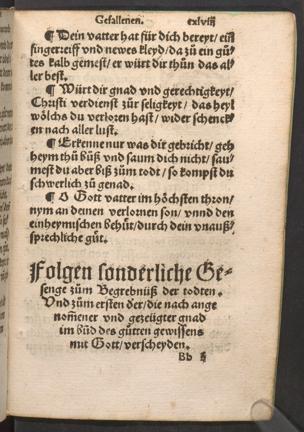 Gefallenen. cxlviij
¶ Dein vatter hat für dich bereyt/ ein
fingerreiff vnd newes kleyd/ da zů ein gů⸗
tes kalb gemest/ er würt dir thůn das al⸗
ler best.
¶ Würt dir gnad vnd gerechtigkeyt/
Christi verdienst zůr seligkeyt/ das heyl
wölchs du verloren hast/ wider schenck⸗
en nach aller lust.
¶ Erkenne nur was dir gebricht/ geh
heym thů bůß vnd saum dich nicht/ sau⸗
mest du aber biß zům todt/ so kompst du
schwerlich zů genad.
¶ O Gott vatter im höchsten thron/
nym an deinen verlornen son/ vnnd den
einheymischen behůt/ durch dein vnauß⸗
sprechliche gůt.
Folgen sonderliche Ge⸗
senge zům Begrebnüß der todten.
Vnd zům ersten der/ die nach ange
nom̄ener vnd gezeügter gnad
im bůd des gůtten gewissens
mit Gott/ verscheyden.
Bb